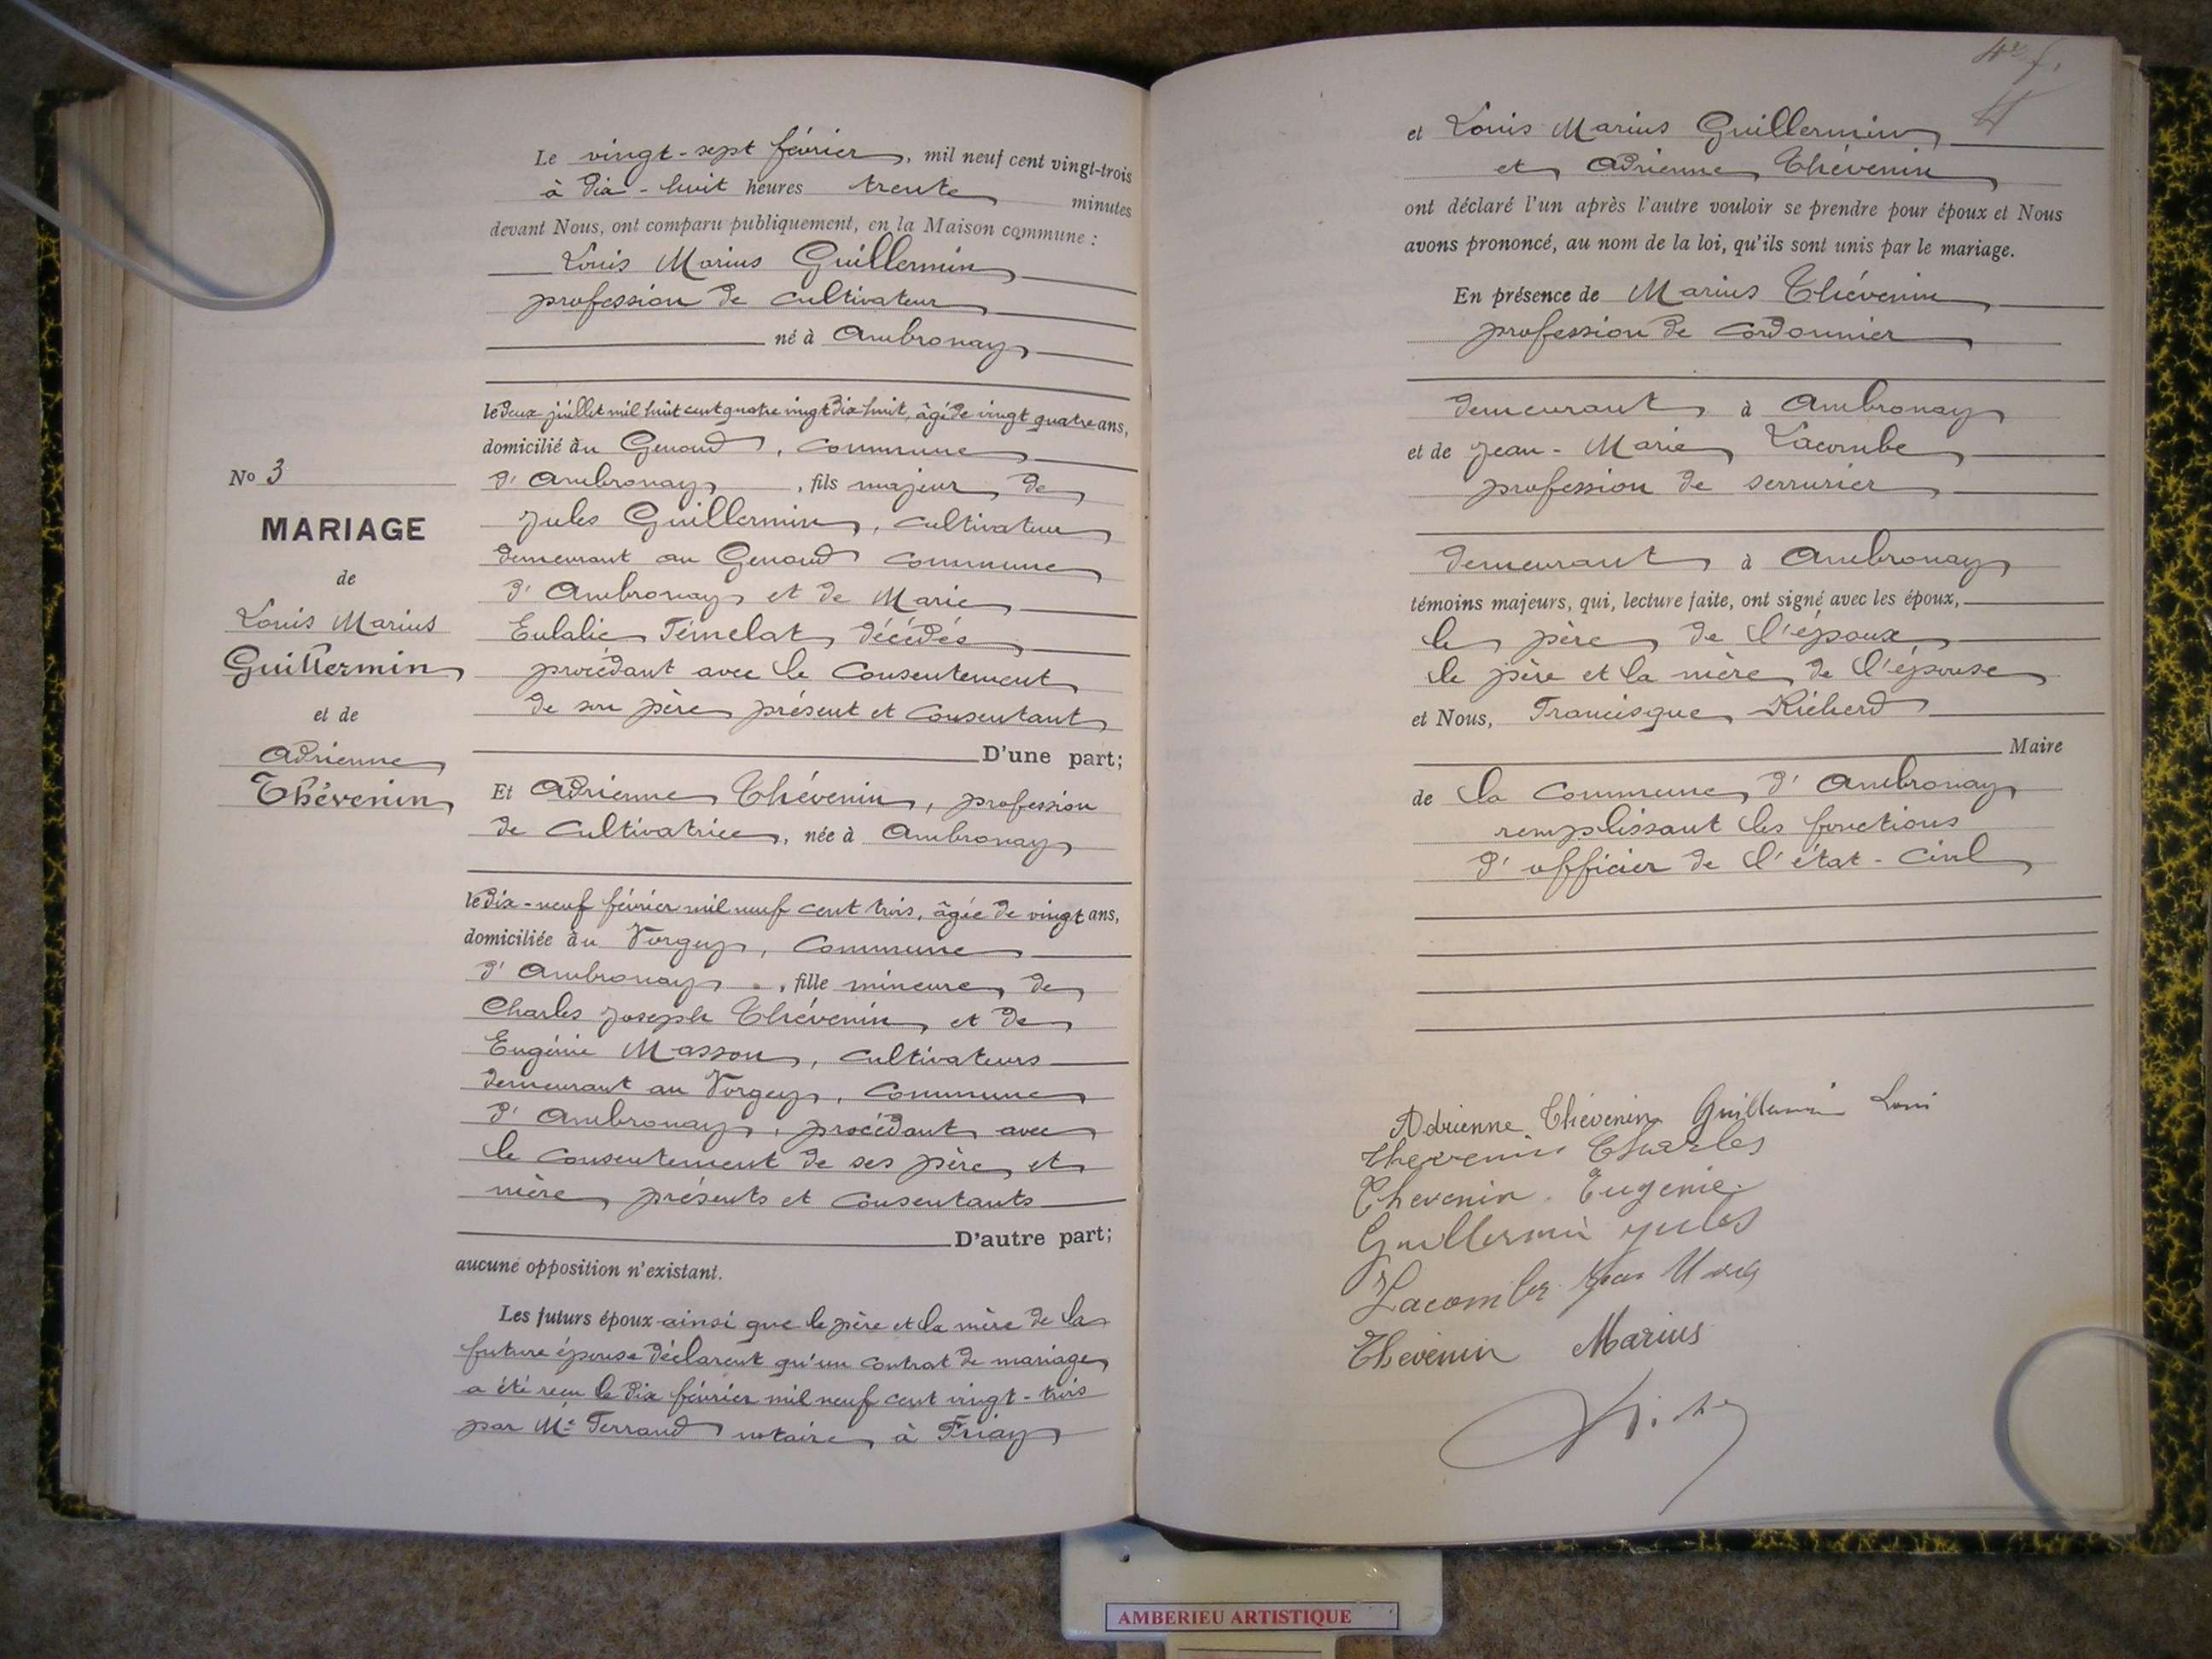 Le vingt-sept février, mil neuf cent vingt-trois
à dix-huit heures trente minutes
devant Nous, ont comparu publiquement, en la Maison commune :
Louis Marius Guillermin
profession de cultivateur
né à Ambronay
le deux juillet mil huit cent quatre vingt dix huit, âgé de vingt quatre ans,
domicilié au Genoud, commune
d'Ambronay, fils majeur de
Jules Guillermin, cultivateur
demeurant au Genoud commune
d'Ambronay et de Marie
Eulalie Témelat décédée
procédant avec le consentement
de son père présent et consentant
D'une part;
No 3
MARIAGE
de
Louis Marius
Guillermin
et de
Adrienne
Thévenin
Et Adrienne Thévenin, profession
de cultivatrice, née à Ambronay
le dix-neuf février mil neuf cent trois, âgée de vingt ans,
domiciliée au Vorgey, commune
d'Ambronay, fille mineure de
Charles Joseph Thévenin et de
Eugénie Masson, cultivateurs
demeurant au Vorgey, commune
d'Ambronay, procédant avec
le consentement de ses père et
mère présents et consentants
D'autre part;
aucune opposition n'existant.
Les futurs époux ainsi que le père et la mère de la
future épouse déclarent qu'un contrat de mariage
a été reçu le dix février mil neuf cent vingt-trois
par Me Ferrand notaire à Priay
4e f.
et Louis Marius Guillermin
et Adrienne Thévenin
ont déclaré l'un après l'autre vouloir se prendre pour époux et Nous
avons prononcé, au nom de la loi, qu'ils sont unis par le mariage.
En présence de Marius Thévenin
profession de cordonnier
demeurant à Ambronay
et de Jean-Marie Lacombe
profession de serrurier
demeurant à Ambronay
témoins majeurs, qui, lecture faite, ont signé avec les époux,
le père de l'époux
le père et la mère de l'épouse
et Nous, Francisque Richerd
Maire
de la commune d'Ambronay
remplissant les fonctions
d'officier de l'état-civil
Adrienne Thévenin Guillermin Loui
Thevenin Charles
Thevenin Eugenie
Guillermin jules
Lacombe Jean Marie
Thevenin Marius
AMBERIEU ARTISTIQUE